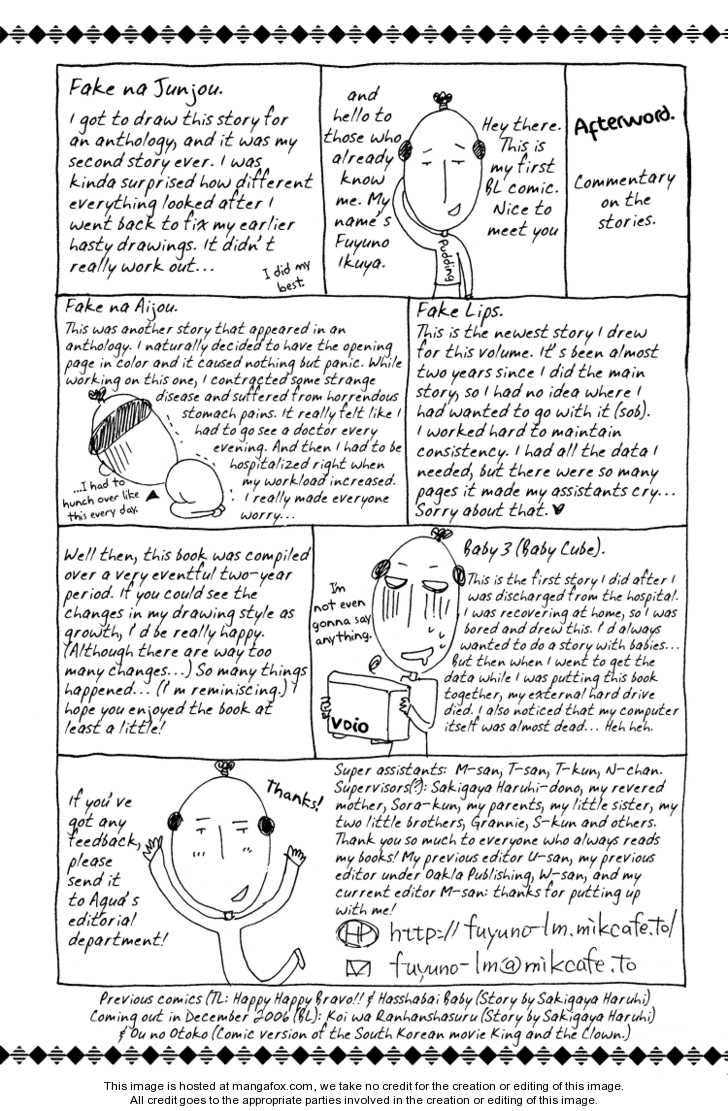 Afterword.
Commentary
on the
stories.
Hey there.
This is
my first
BL comic.
Nice to
meet you
and
hello to
those who
already
know
me. My
name's
Fuyuno
Ikuya.
Pudding
Fake na Junjou.
I got to draw this story for
an anthology, and it was my
second story ever. I was
kinda surprised how different
everything looked after I
went back to fix my earlier
hasty drawings. It didn't
really work out...
I did my
best.
Fake Lips.
This is the newest story I drew
for this volume. It's been almost
two years since I did the main
story, so I had no idea where I
had wanted to go with it (sob).
I worked hard to maintain
consistency. I had all the data I
needed, but there were so many
pages it made my assistants cry...
Sorry about that. ♥
Fake na Aijou.
This was another story that appeared in an
anthology. I naturally decided to have the opening
page in color and it caused nothing but panic. While
working on this one, I contracted some strange
disease and suffered from horrendous
stomach pains. It really felt like I
had to go see a doctor every
evening. And then I had to be
hospitalized right when
my workload increased.
I really made everyone
worry...
...I had to
hunch over like
this every day.
Baby 3 (Baby Cube).
This is the first story I did after I
was discharged from the hospital.
I was recovering at home, so I was
bored and drew this. I'd always
wanted to do a story with babies...
But then when I went to get the
data while I was putting this book
together, my external hard drive
died. I also noticed that my computer
itself was almost dead... Heh heh.
I'm
not even
gonna say
anything.
VOIO
Well then, this book was compiled
over a very eventful two-year
period. If you could see the
changes in my drawing style as
growth, I'd be really happy.
(Although there are way too
many changes...) So many things
happened... (I'm reminiscing.) I
hope you enjoyed the book at
least a little!
Super assistants: M-san, T-san, T-kun, N-chan.
Supervisors(?): Sakigaya Haruhi-dono, my revered
mother, Sora-kun, my parents, my little sister, my
two little brothers, Grannie, S-kun and others.
Thank you so much to everyone who always reads
my books! My previous editor U-san, my previous
editor under Oakla Publishing, W-san, and my
current editor M-san: thanks for putting up
with me!
HP http://fuyuno-lm.mikcafe.to/
fuyuno-lm@mikcafe.to
Thanks!
If you've
got any
feedback,
please
send it
to Aqua's
editorial
department!
Previous comics (TL: Happy Happy Bravo!! & Hasshabai Baby (Story by Sakigaya Haruhi)
Coming out in December 2006 (BL): Koi wa Ranhanshasuru (Story by Sakigaya Haruhi)
& Ou no Otoko (Comic version of the South Korean movie King and the Clown.)
This image is hosted at mangafox.com, we take no credit for the creation or editing of this image.
All credit goes to the appropriate parties involved in the creation or editing of this image.